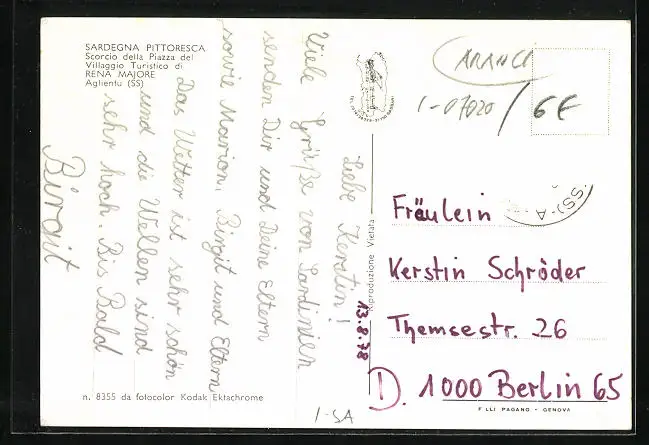 SARDEGNA PITTORESCA
Scorcio della Piazza del
Villaggio Turistico di
RENA MAJORE
Aglientu (SS)
Liebe Kerstin!
Viele Grüße von Sardinien
senden Dir und Deine Eltern
sowie Marion, Birgit und Eltern
Das Wetter ist sehr schön
und die Wellen sind
sehr hoch. Bis Bald
Birgit
n. 8355 da fotocolor Kodak Ektachrome
Riproduzione Vietata
13.8.78
I-07020 / 6€
Fräulein
Kerstin Schröder
Themsestr. 26
D. 1000 Berlin 65
F.LLI PAGANO - GENOVA
I-SA